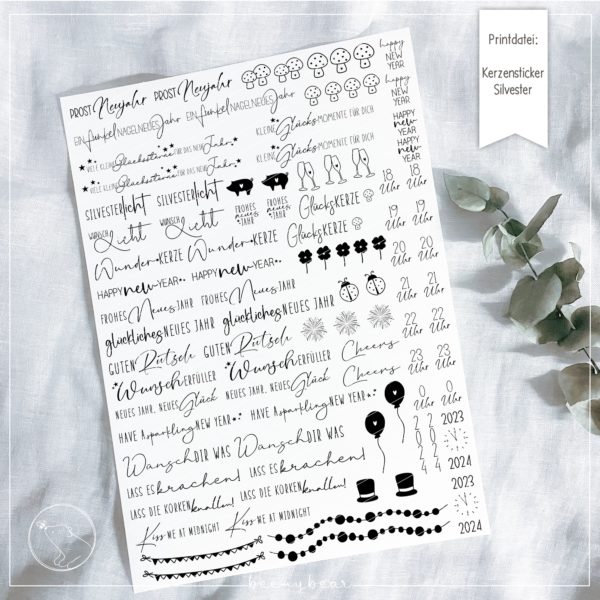 Printdatei:
Kerzensticker
Silvester
PROST Neujahr PROST Neujahr
happy
NEW
YEAR
happy
NEW
YEAR
EIN funkelNAGELNEUES Jahr EIN funkelNAGELNEUES Jahr
KLEINE GlücksMOMENTE FÜR DICH
HAPPY
new
YEAR
VIELE KLEINE Glückssterne FÜR DAS NEUE Jahr
KLEINE GlücksMOMENTE FÜR DICH
HAPPY
new
YEAR
VIELE KLEINE Glückssterne FÜR DAS NEUE Jahr
SILVESTERlicht SILVESTERlicht
18 Uhr 18 Uhr
WUNSCH Licht WUNSCH Licht
FROHES
neues
JAHR
FROHES
neues
JAHR
GlücksKERZE
19 Uhr 19 Uhr
Wunder KERZE Wunder KERZE GlücksKERZE
20 Uhr 20 Uhr
HAPPY new YEAR HAPPY new YEAR
FROHES Neues JAHR FROHES Neues JAHR
21 Uhr 21 Uhr
glückliches NEUES JAHR glückliches NEUES JAHR
22 Uhr 22 Uhr
GUTEN Rutsch GUTEN Rutsch
WunschERFÜLLER WunschERFÜLLER
Cheers
23 Uhr 23 Uhr
NEUES JAHR, NEUES Glück NEUES JAHR, NEUES Glück
Cheers
0 Uhr 0 Uhr
HAVE A sparkling NEW YEAR HAVE A sparkling NEW YEAR
2024 2024
2023
Wünsch DIR WAS Wünsch DIR WAS
2024
LASS ES krachen! LASS ES krachen!
2023
LASS DIE KORKEN knallen! LASS DIE KORKEN knallen!
2024
Kiss ME AT MIDNIGHT Kiss ME AT MIDNIGHT
beemybear